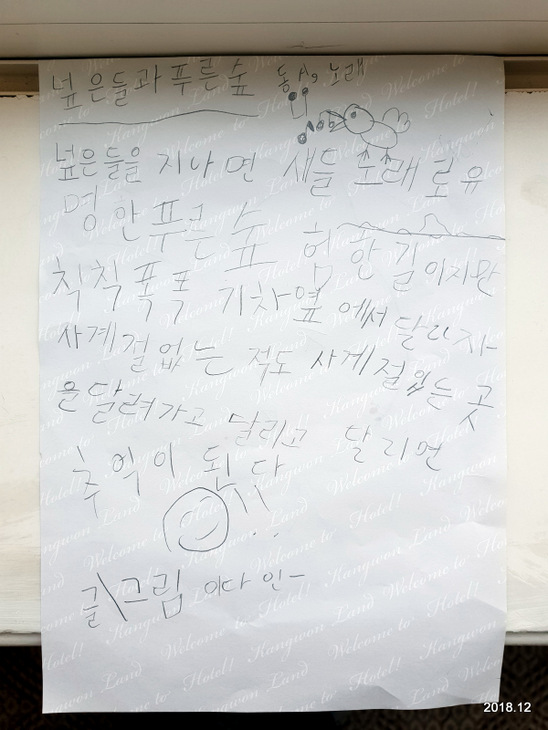 넒은들과 푸른숲 동시 노래
넒은들을 지나면 새들 노래로유
명한푸른숲 험한길이지만
칙칙폭폭 기차옆에서 달리자
사계절없는 적도 사계절있는곳
을달려가고 달리고 달리면
추억이 된다!!
글\그림 이다인
Welcome to Kangwon Land Hotel!
2018.12